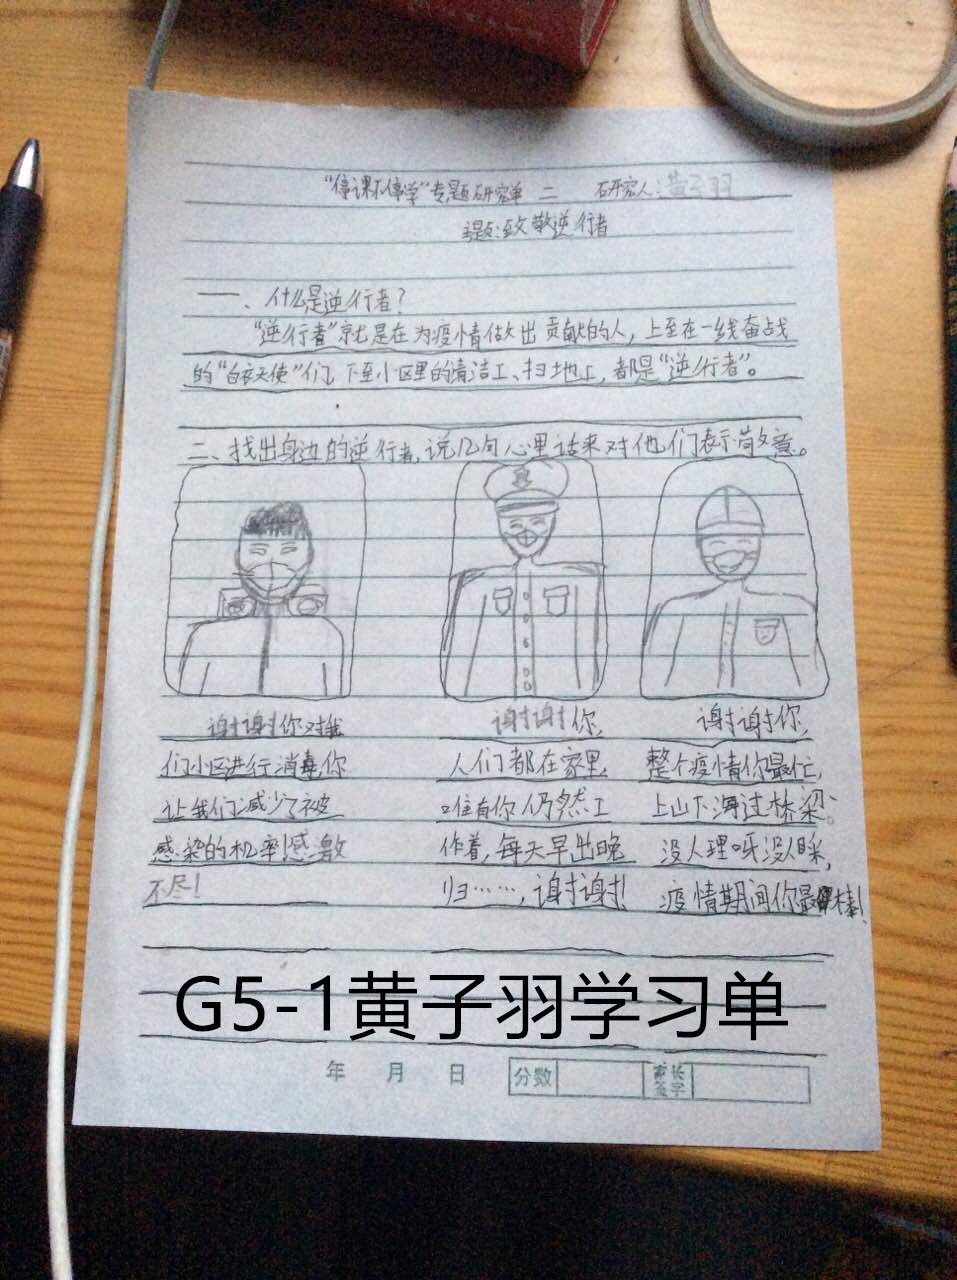 “停课不停学”专题研究单 二 研究人:黄子羽
主题:致敬逆行者
一、什么是逆行者?
“逆行者”就是在为疫情做出贡献的人,上至在一线奋战
的“白衣天使”们,下至小区里的清洁工、扫地工,都是“逆行者”。
二、找出身边的逆行者,说几句心里话来对他们表示敬意。
谢谢你对我
们小区进行消毒,你
让我们减少了被
感染的机率!感激
不尽!
谢谢你,
人们都在家里,
唯有你仍然工
作着,每天早出晚
归……,谢谢!
谢谢你,
整个疫情你最忙,
上山下海过桥梁。
没人理呀没人睬,
疫情期间你最棒!
G5-1黄子羽学习单
年 月 日 分数 家长签字